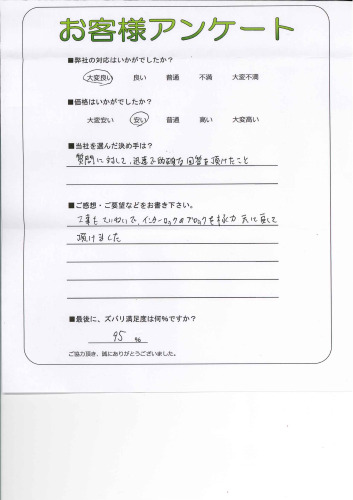 お客様アンケート
■弊社の対応はいかがでしたか？
大変良い 良い 普通 不満 大変不満
■価格はいかがでしたか？
大変安い 安い 普通 高い 大変高い
■当社を選んだ決め手は？
質問に対して、迅速で的確な回答を頂けたこと
■ご感想・ご要望などをお書き下さい。
工事もていねいで、インターロックのブロックを極力元に戻して
頂けました
■最後に、ズバリ満足度は何%ですか？
95 %
ご協力頂き、誠にありがとうございました。